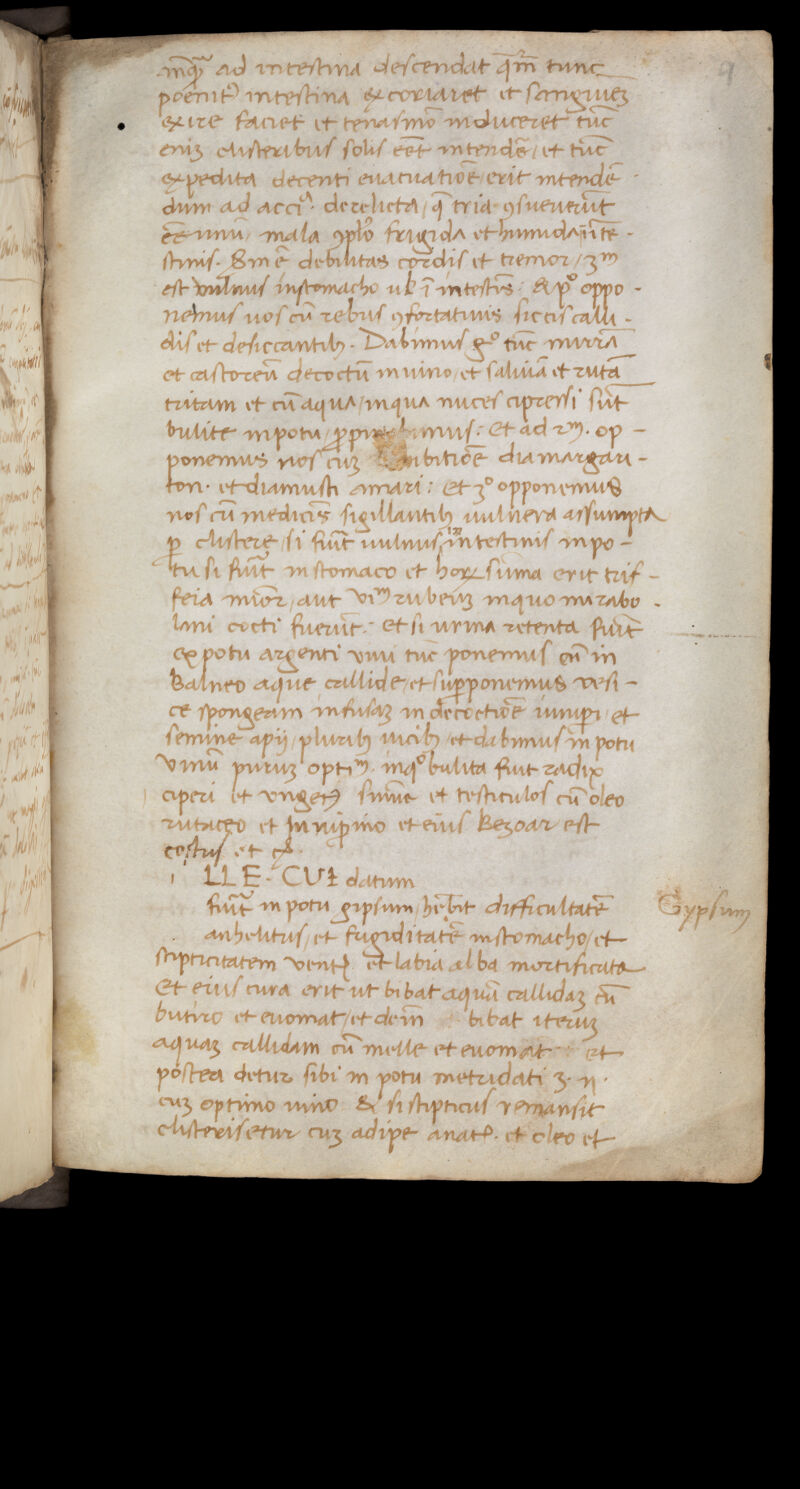 ad intestina descendat qm̄ tunc
intestina excoriaret et sanguineȝ
exire faciet et tenasmō induceret tūc
enīȝ clisteribus solis eēt intendē / et tūc
expedita decenti euacuatiōe / erit intendē
dum ad acciᵃ. derelicta / q̄ tria ꝯsueuerūt
eē unū / mala ꝯplō frigida et humida ī īnte-
stinis. Sm ē debilitas cordis et tremor / 3ᵐ
est vulnus in stomacho ul ī intestīs : & pº oppo-
nemus nos cū rebus ꝯfortatiuis siccis calli-
dis et desiccantibꝫ. Dabimus gº tūc mirrā
et castoreū decoctū in uino / et saluiā et rutā
tritam et cū aqua / in qua nuces cipressi sūt
bulite in potu / : Et ad 2ᵐ. op-
ponemus nos cuȝ diamargari-
ton. et diamusti amari : Et 3º opponemus
nos cū medicīs sigillantibꝫ uulnera assumpta
ꝑ clistere / si fūit uulnus in intestinis in po-
tu si fūit in stomaco et hoꝝ sūma erit trif-
feia minor / aut viᵐ rubeuȝ in quo mirabo-
lani cocti fuerūt. Et si urina retenta fūit
ex potu argenti viui tūc ponemus eū in
Balneo aque callide / et suꝑponemus vesi-
ce spongeam infusaȝ in decoctiōe iuniꝑi / et
semine apij / pluribꝫ uicibꝫ / et dabimus in potu
vinū puruȝ optiᵐ. in qº bulita fiut radix
ciperi et et testiculos cū oleo
rutaceo et Iuniꝑino et eius Bezoar est
costus et
ILLE CUI datum
fūit in potu gipsum / hēbit difficultatē
Gypsum
anhelitus / et frigiditatē in stomacho / et
stipticitatem ventꝭ et labia alba mortificata
Et eius cura erit ut bibat aquā callidaȝ cū
butiro et euomat / et deīn bibat iteruȝ
aquaȝ callidam cū melle et euomat et
postea detur sibi in potu metridati ʒ. ij.
cuȝ optimo uino & si stipticus remansit
clisterisetur cuȝ adipe anatꝭ. et oleo et